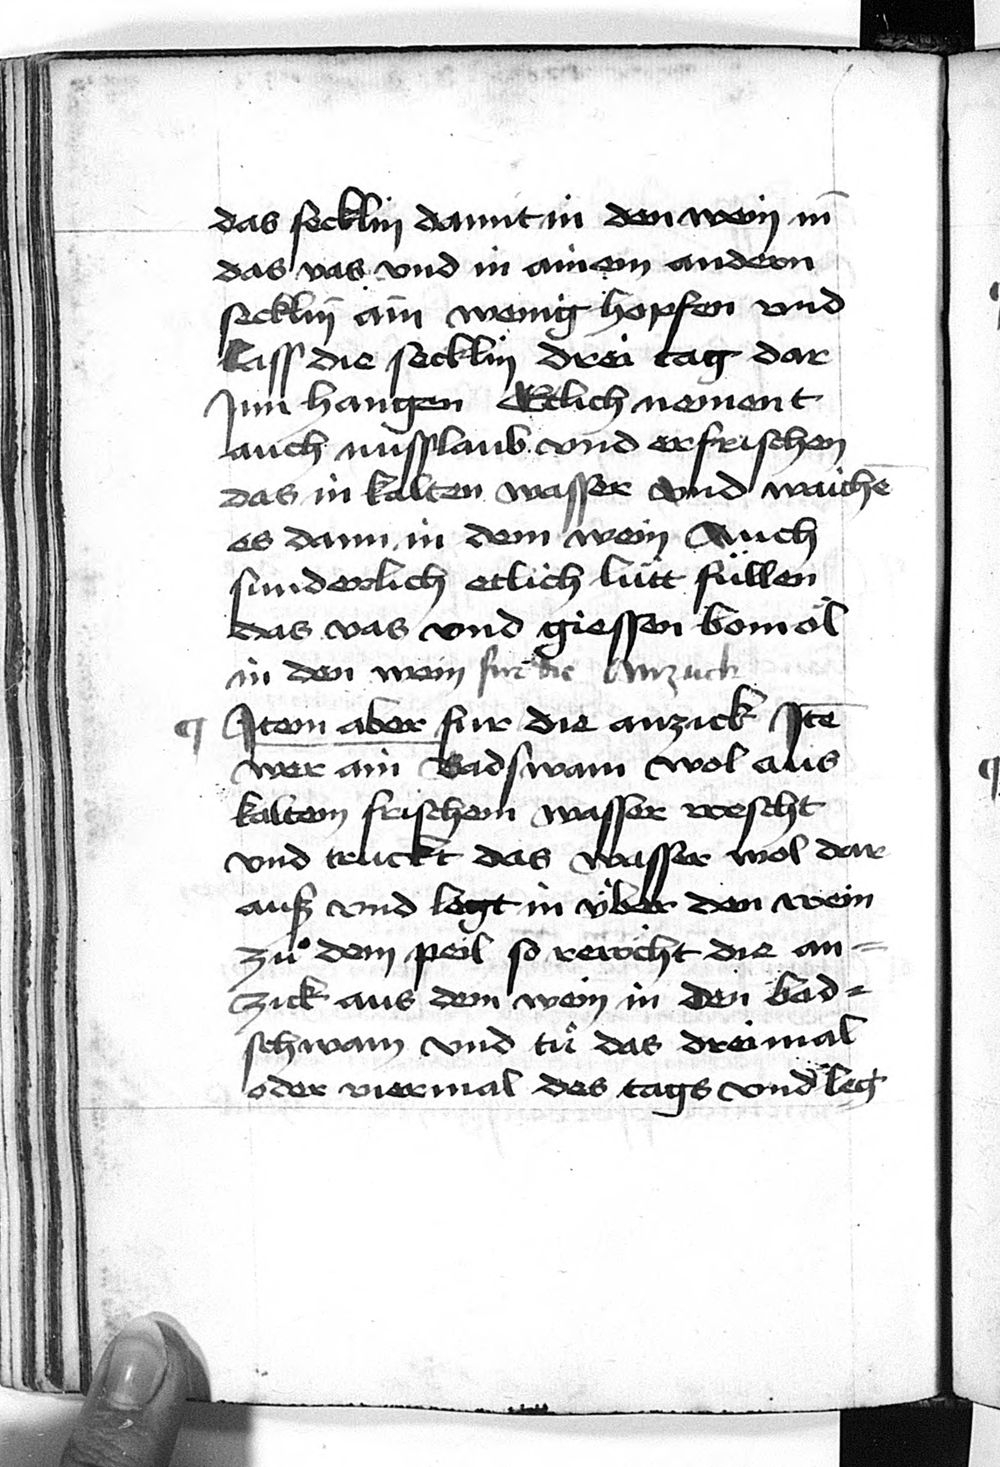 das secklin damit in den wein in̄
das vas vnd in ainem andern
secklin̄ ain̄ wenig hopfen vnd
lass die secklin drei tag dar
Jnn hangen Etlich nement
auch nusslaub vnd erfrischen
das in kalten wasser vnd waichē
es dann in dem wein Auch
sunderlich etlich lütt füllen
das vas vnd giessen bomöl
in den wein für die Anzuck
¶ Jtem aber fur die anzick Jtē
wer ain Badswam wol aus
kaltem frischem wasser wescht
vnd truckt das wasser wol dar
auß vnd legt in v̈ber den wein
zuͦ dem peil so zewcht die an=
zick aus dem wein in den bad=
schwam vnd tuͦ das dreimal
oder viermal des tags vnd leg